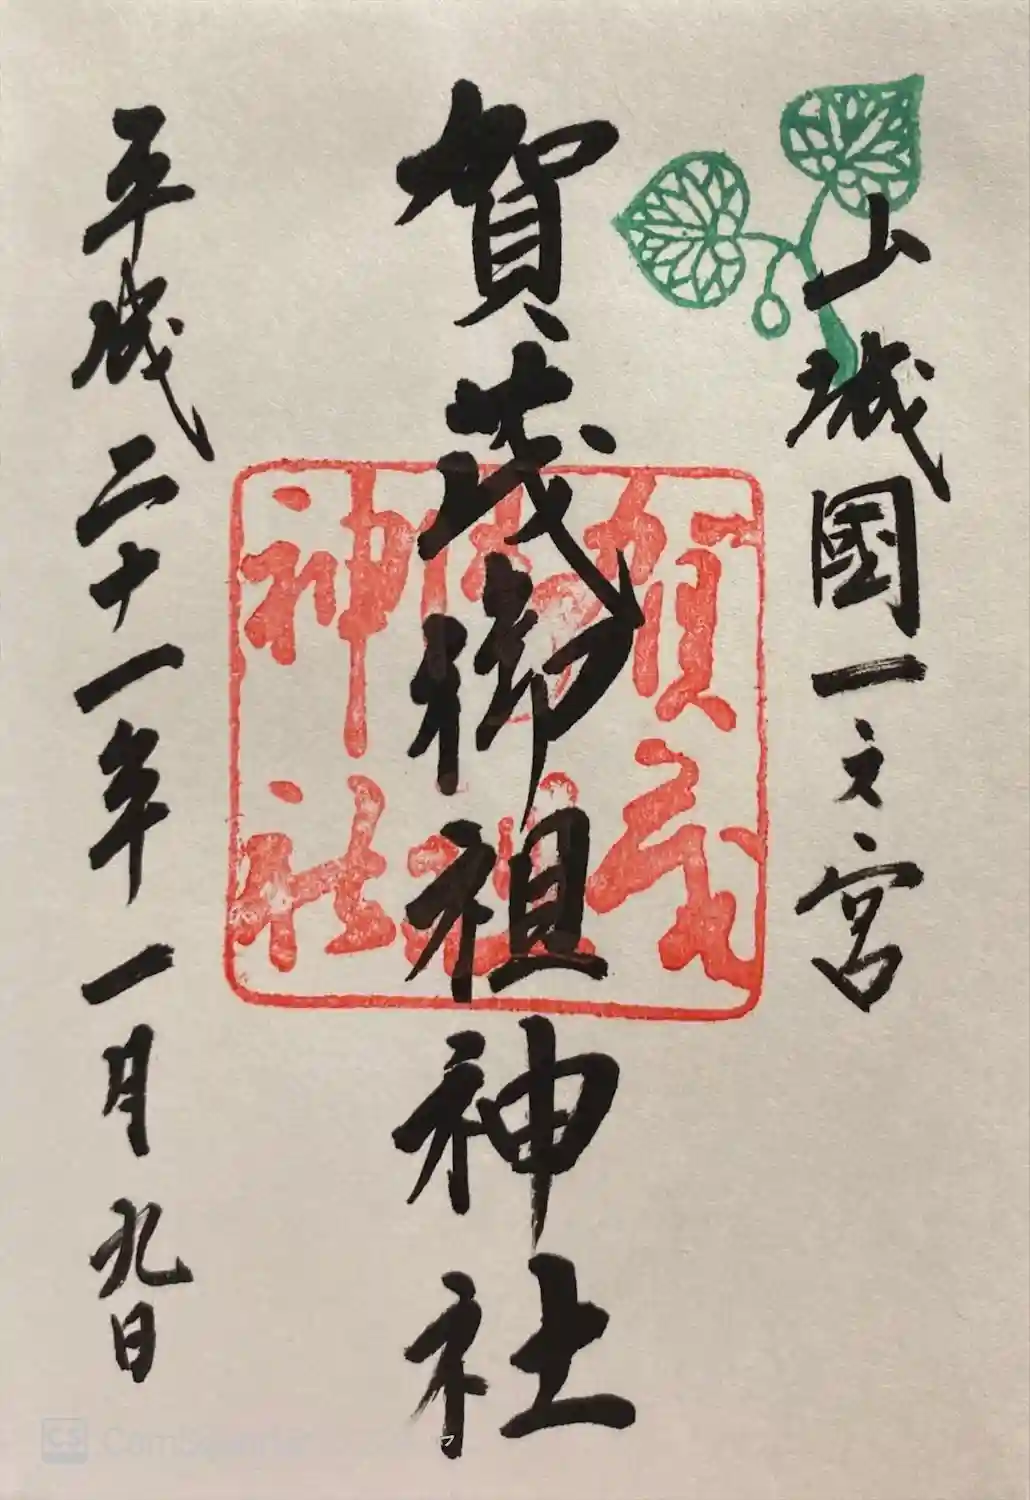 山城國一之宮
賀茂御祖神社
賀茂
御祖
神社
平成二十一年一月九日
CS CamScanner